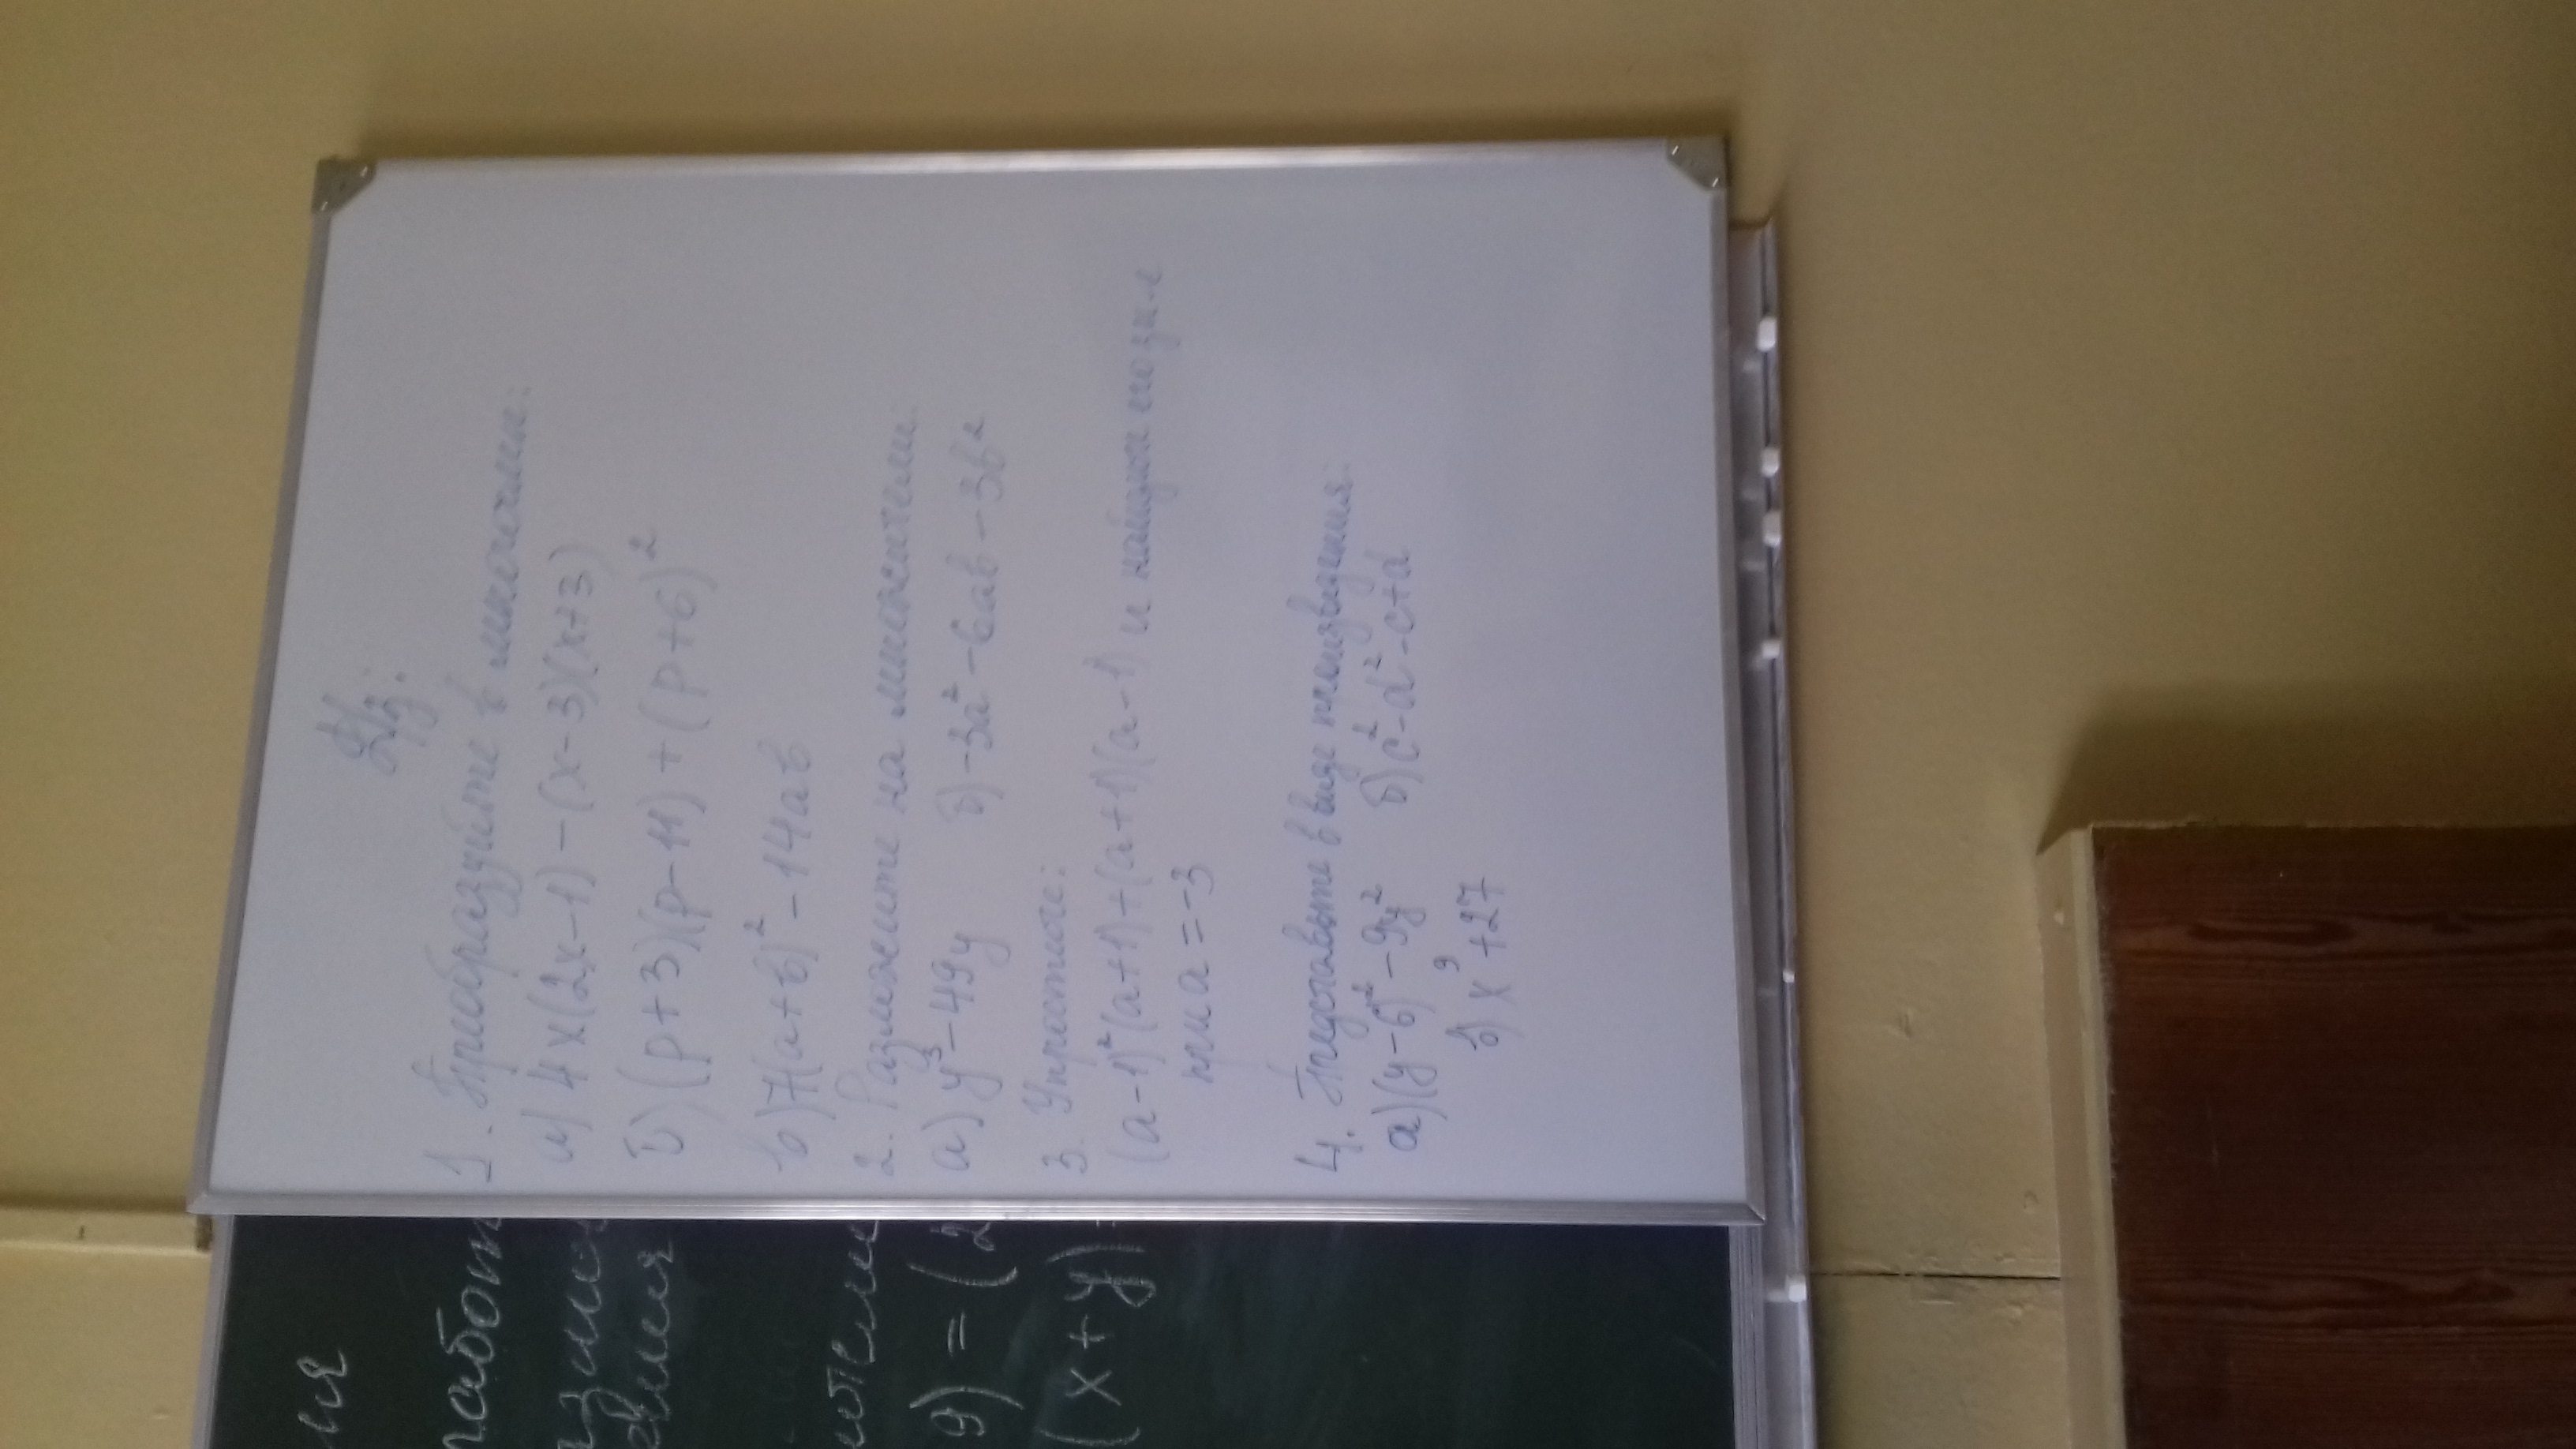 Д/з:
1. Преобразуйте в многочлен:
а) 4x(2x-1)-(x-3)(x+3)
б) (p+3)(p-11)+(p+6)²
в) 7(a+b)²-14ab
2. Разложите на множители:
а) y³-49y б) -3a²-6ab-3b²
3. Упростите:
(a-1)²(a+1)+(a+1)(a-1) и найдите его зн-е
при a=-3
4. Представьте в виде произведения:
а) (y-6)²-9y² б) c²-d²-c+d
в) x⁹+27
ия
работ
9) = (2
(x+y) =